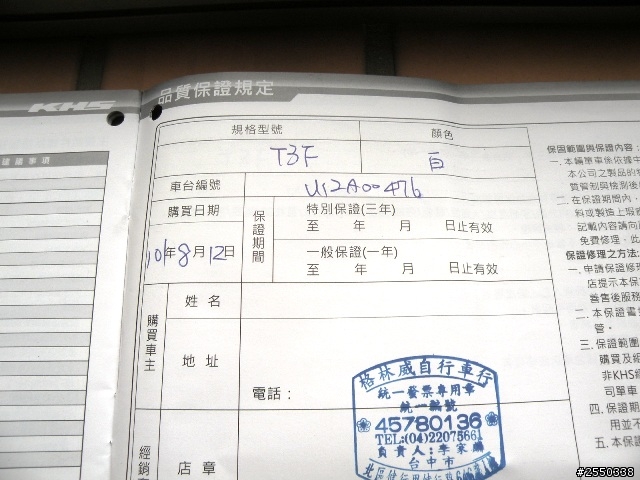 KHS
品質保證規定
規格型號
顏色
T3F
白
車台編號
U12A00476
購買日期
保證期間
特別保證(三年)
至 年 月 日止有效
101年8月12日
一般保證(一年)
至 年 月 日止有效
購買車主
姓名
地址
電話：
店章
格林威自行車行
統一發票專用章
統一編號
45780136
TEL:(04)22075661
台中市
保固範圍與保證內容：
一. 本輛單車係依據中
本公司之製品的
質管制與檢測後
二. 在保證期間內，
料或製造上瑕疵
記載內容請向
免費修理，此
保證修理之方法：
一. 申請保證修理
店提示本保
善售後服務
二. 本保證書
管。
三. 保證範圍
購買及經
非KHS經
司單車
四. 保證期
用並不
五. 本保
#2550338